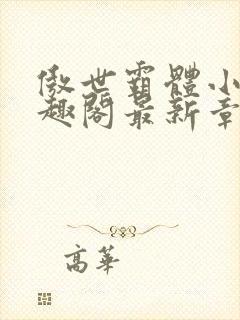 傲世霸體小
趣閣最新章
高華